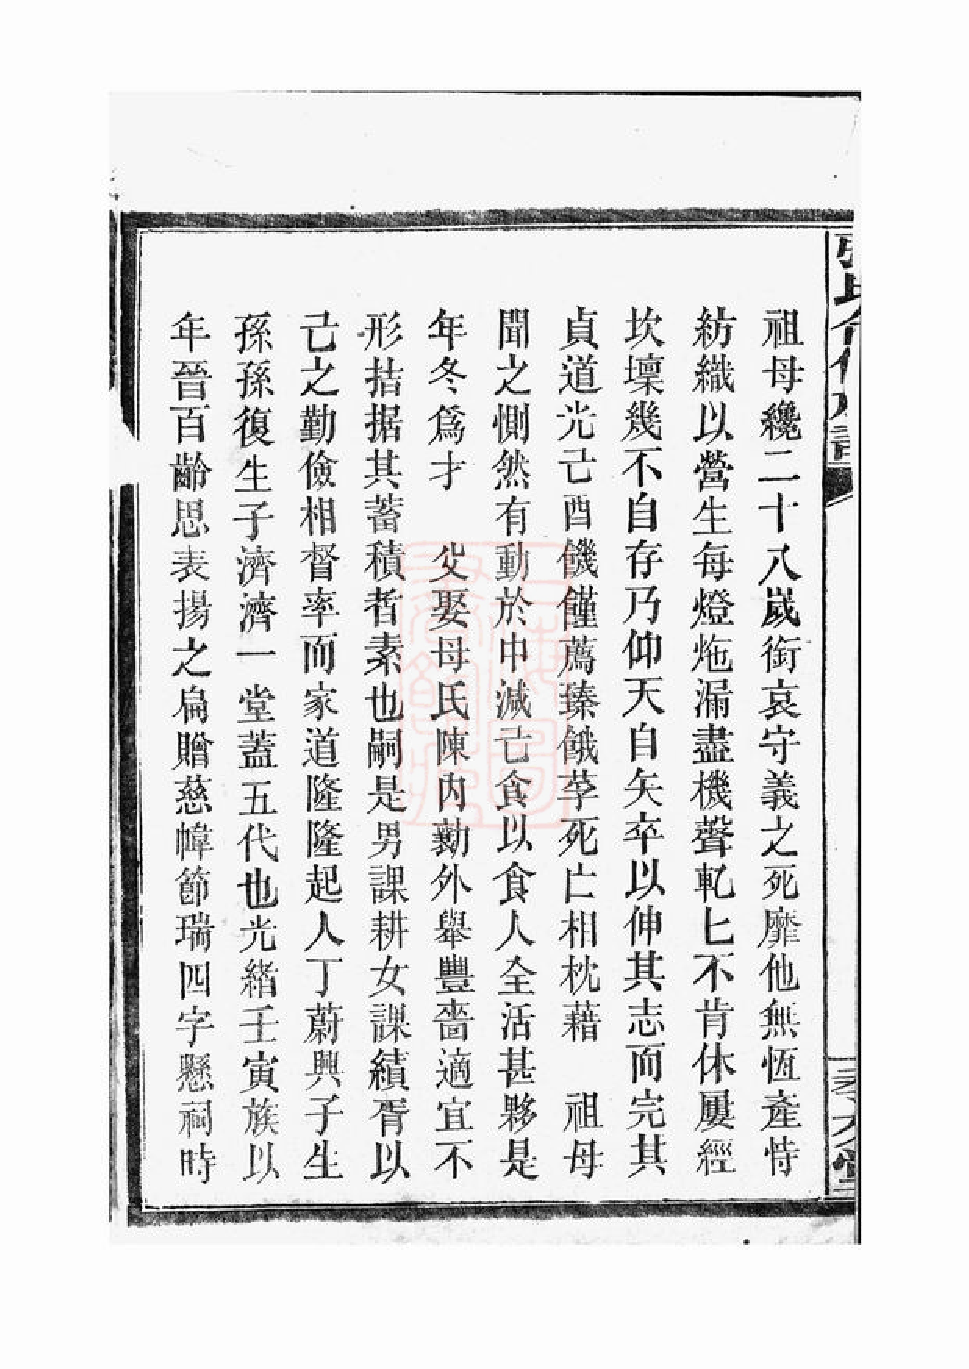 祖母纔二十八歲銜哀守義之死靡他無恆產恃
紡織以營生每燈炧漏盡機聲軋匕不肯休屢經
坎壈幾不自存乃仰天自矢卒以伸其志而完其
貞道光己酉饑饉薦臻餓莩死亡相枕藉　祖母
聞之惻然有動於中減己食以食人全活甚夥是
年冬爲才　父娶母氏陳內勷外舉豐嗇適宜不
形拮据其蓄積者素也嗣是男課耕女課績胥以
己之勤儉相督率而家道隆隆起人丁蔚興子生
孫孫復生子濟濟一堂蓋五代也光緒壬寅族以
年晉百齡思表揚之扁贈慈幃節瑞四字懸祠時